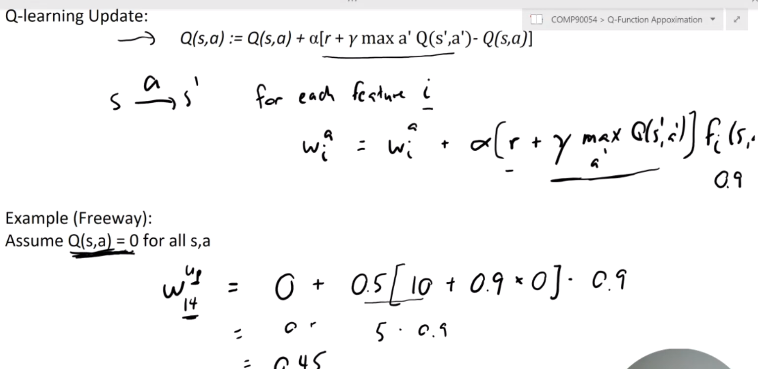 Q-learning Update:
COMP90054 > Q-Function Appoximation
→ Q(s,a) := Q(s,a) + α[r + γ max a' Q(s',a')- Q(s,a)]
s a→ s' for each feature i
wᵢᵃ = wᵢᵃ + α[r + γ max a' Q(s',a')] fᵢ(s,
0.9
Example (Freeway):
Assume Q(s,a) = 0 for all s,a
w₁₄ᵘᵖ = 0 + 0.5[10 + 0.9 × 0] · 0.9
= 0 + 5 · 0.9
= 0.45